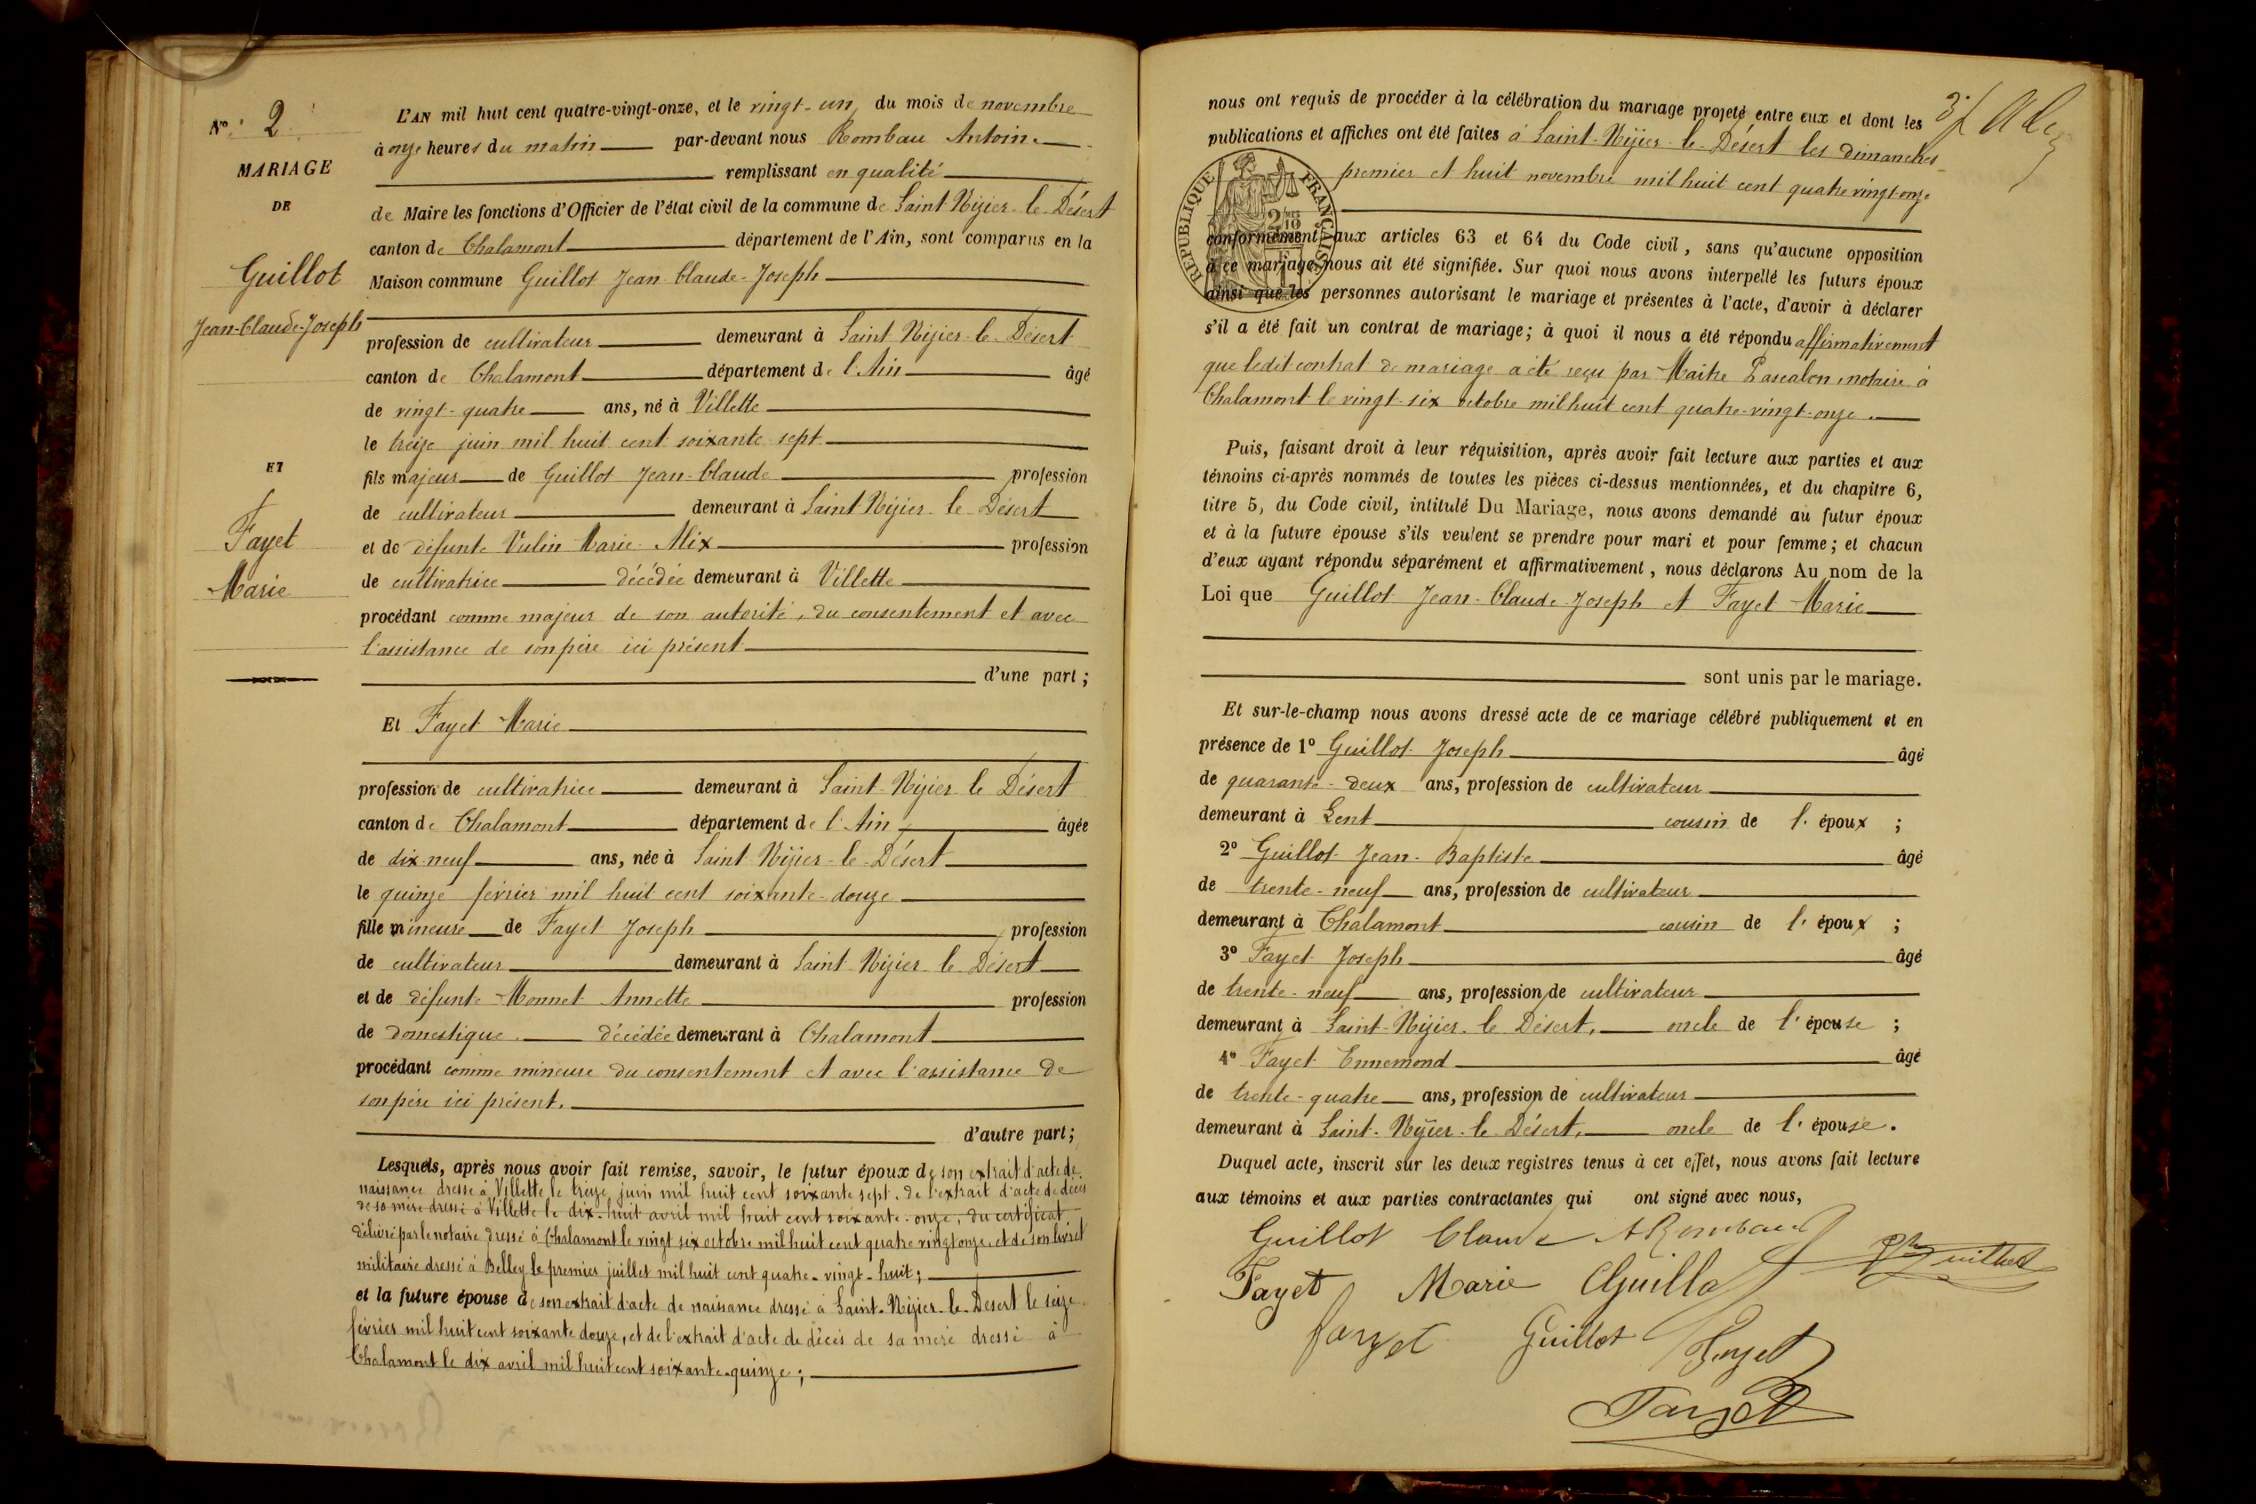 N° 2
MARIAGE
DE
Guillot
Jean-Claude-Joseph
ET
Fayet
Marie
L'AN mil huit cent quatre-vingt-onze, et le vingt-un, du mois de novembre
à onze heures du matin par-devant nous Rombau Antoine
remplissant en qualité
de Maire les fonctions d'Officier de l'état civil de la commune de Saint Nizier-le-Désert
canton de Chalamont département de l'Ain, sont comparus en la
Maison commune Guillot Jean-Claude-Joseph
profession de cultivateur demeurant à Saint Nizier-le-Désert
canton de Chalamont département de l'Ain âgé
de vingt-quatre ans, né à Villette
le treize juin mil huit cent soixante-sept
fils majeur de Guillot Jean-Claude profession
de cultivateur demeurant à Saint Nizier-le-Désert
et de défunte Vulin Marie Alix profession
de cultivatrice décédée demeurant à Villette
procédant comme majeur de son autorité, du consentement et avec
l'assistance de son père ici présent
d'une part;
Et Fayet Marie
profession de cultivatrice demeurant à Saint-Nizier-le-Désert
canton de Chalamont département de l'Ain âgée
de dix-neuf ans, née à Saint-Nizier-le-Désert
le quinze février mil huit cent soixante-douze
fille mineure de Fayet Joseph profession
de cultivateur demeurant à Saint-Nizier-le-Désert
et de défunte Monnet Annette profession
de domestique décédée demeurant à Chalamont
procédant comme mineure du consentement et avec l'assistance de
son père ici présent.
d'autre part;
Lesquels, après nous avoir fait remise, savoir, le futur époux de son extrait d'acte de
naissance dressé à Villette le treize juin mil huit cent soixante sept, de l'extrait d'acte de décès
de sa mère dressé à Villette le dix-huit avril mil huit cent soixante-onze, du certificat
délivré par le notaire dressé à Chalamont le vingt six octobre mil huit cent quatre vingt onze, et de son livret
militaire dressé à Belley le premier juillet mil huit cent quatre-vingt-huit;
et la future épouse de son extrait d'acte de naissance dressé à Saint-Nizier-le-Désert le seize
février mil huit cent soixante douze, et de l'extrait d'acte de décès de sa mère dressé à
Chalamont le dix avril mil huit cent soixante-quinze;
nous ont requis de procéder à la célébration du mariage projeté entre eux et dont les
publications et affiches ont été faites à Saint-Nizier-le-Désert les dimanches
premier et huit novembre mil huit cent quatre vingt onze
RÉPUBLIQUE FRANÇAISE
conformément aux articles 63 et 64 du Code civil, sans qu'aucune opposition
à ce mariage nous ait été signifiée. Sur quoi nous avons interpellé les futurs époux
ainsi que les personnes autorisant le mariage et présentes à l'acte, d'avoir à déclarer
s'il a été fait un contrat de mariage; à quoi il nous a été répondu affirmativement
que ledit contrat de mariage a été reçu par Maître Pascalon, notaire à
Chalamont le vingt-six octobre mil huit cent quatre-vingt-onze.
Puis, faisant droit à leur réquisition, après avoir fait lecture aux parties et aux
témoins ci-après nommés de toutes les pièces ci-dessus mentionnées, et du chapitre 6,
titre 5, du Code civil, intitulé Du Mariage, nous avons demandé au futur époux
et à la future épouse s'ils veulent se prendre pour mari et pour femme; et chacun
d'eux ayant répondu séparément et affirmativement, nous déclarons Au nom de la
Loi que Guillot Jean-Claude-Joseph et Fayet Marie
sont unis par le mariage.
Et sur-le-champ nous avons dressé acte de ce mariage célébré publiquement et en
présence de 1° Guillot Joseph âgé
de quarante-deux ans, profession de cultivateur
demeurant à Lent cousin de l'époux;
2° Guillot Jean-Baptiste âgé
de trente-neuf ans, profession de cultivateur
demeurant à Chalamont cousin de l'époux;
3° Fayet Joseph âgé
de trente-neuf ans, profession de cultivateur
demeurant à Saint-Nizier-le-Désert, oncle de l'épouse;
4° Fayet Ennemond âgé
de trente-quatre ans, profession de cultivateur
demeurant à Saint-Nizier-le-Désert, oncle de l'épouse.
Duquel acte, inscrit sur les deux registres tenus à cet effet, nous avons fait lecture
aux témoins et aux parties contractantes qui ont signé avec nous,
Guillot Claude A Rombau
Fayet Marie Guillot
Guillot